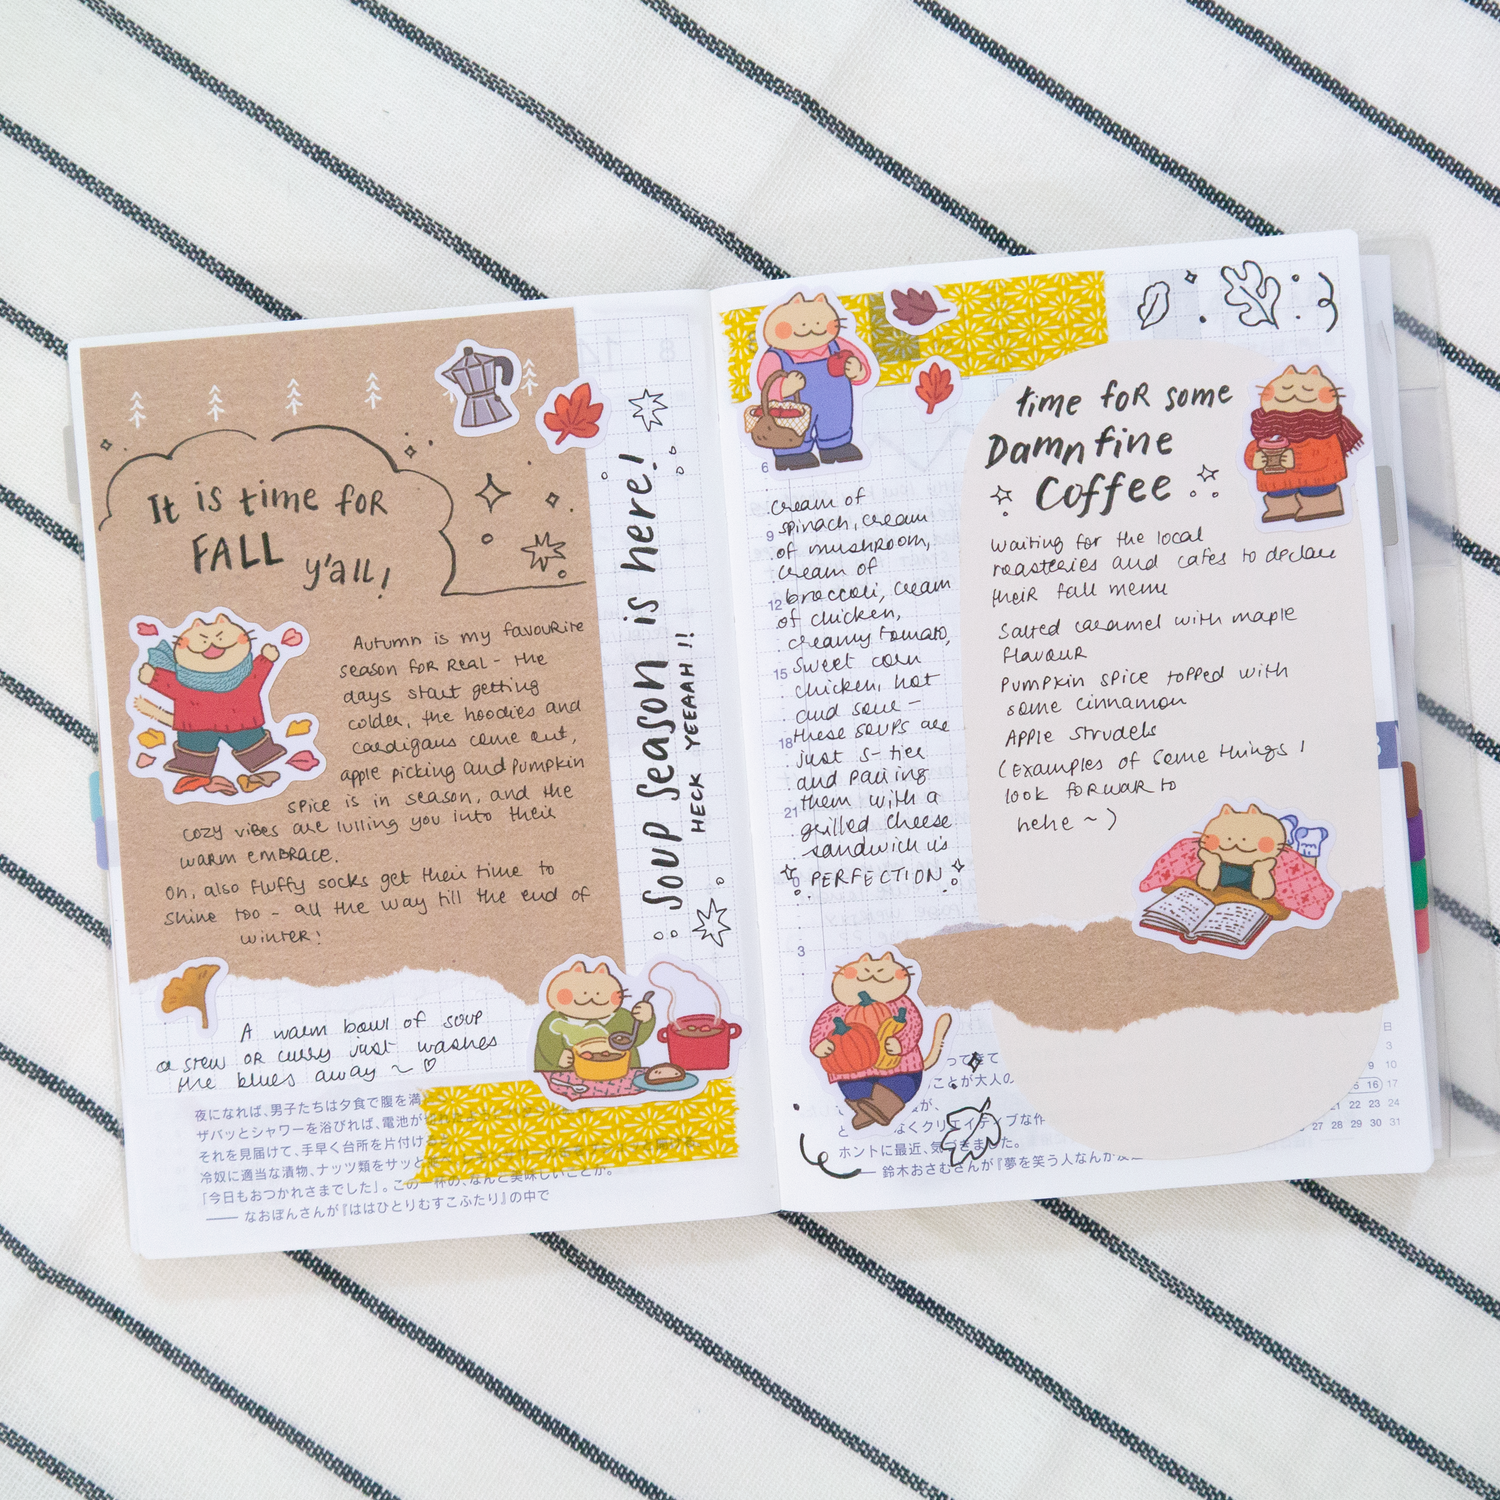 It is time for
FALL y'all!
Autumn is my favourite
season for real - the
days start getting
colder, the hoodies and
cardigans come out,
apple picking and pumpkin
spice is in season, and the
cozy vibes are lulling you into their
warm embrace.
Oh, also fluffy socks get their time to
shine too - all the way till the end of
winter!
A warm bowl of soup
or stew or curry just washes
the blues away ~ ♡
夜になれば、男子たちは夕食で腹を満
ザバッとシャワーを浴びれば、電池が
それを見届けて、手早く台所を片付け
冷奴に適当な漬物、ナッツ類をサッと
「今日もおつかれさまでした」。この一杯の、なんと美味しいことか。
—— なおぽんさんが『ははひとりむすこふたり』の中で
Soup season is here!
HECK YEEAAH !!
6
9
12
15
18
21
3
cream of
spinach, cream
of mushroom,
cream of
broccoli, cream
of chicken,
creamy tomato,
sweet corn
chicken, hot
and sour -
these soups are
just S-tier
and pairing
them with a
grilled cheese
sandwich is
PERFECTION
time for some
Damn fine
Coffee
Waiting for the local
roasteries and cafes to declare
their fall menu
Salted caramel with maple
flavour
Pumpkin spice topped with
some cinnamon
Apple strudels
(Examples of some things I
look forward to
hehe ~)
って きて
ことが大人の
なくクリエイティブな作
ホントに最近、気づきました。
—— 鈴木おさむさんが『夢を笑う人なんか
日
3
9 10
16 17
22 23 24
27 28 29 30 31